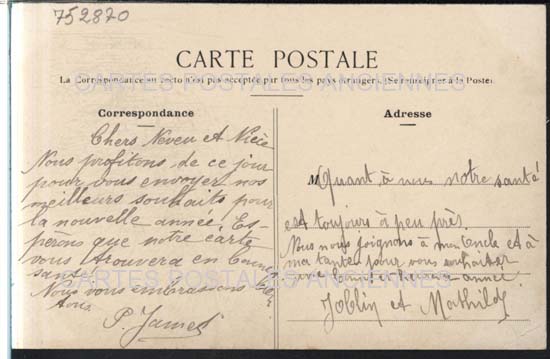 752870
CARTE POSTALE
La Correspondance au recto n'est pas acceptée par tous les pays étrangers (Se renseigner à la Poste)
CARTES POSTALES ANCIENNES
Correspondance
Chers Neveu et Nièce
Nous profitons de ce jour
pour vous envoyer nos
meilleurs souhaits pour
la nouvelle année. Es-
pérons que notre carte
vous trouvera en bonne
santé
Nous vous embrassons
tous.
P. James
Adresse
M Quant à nous notre santé
est toujours à peu près
Nous nous joignons à mon Oncle et à
ma tante pour vous souhaiter
une bonne heureuse année
Joblin et Mathilde
CARTES POSTALES ANCIENNES